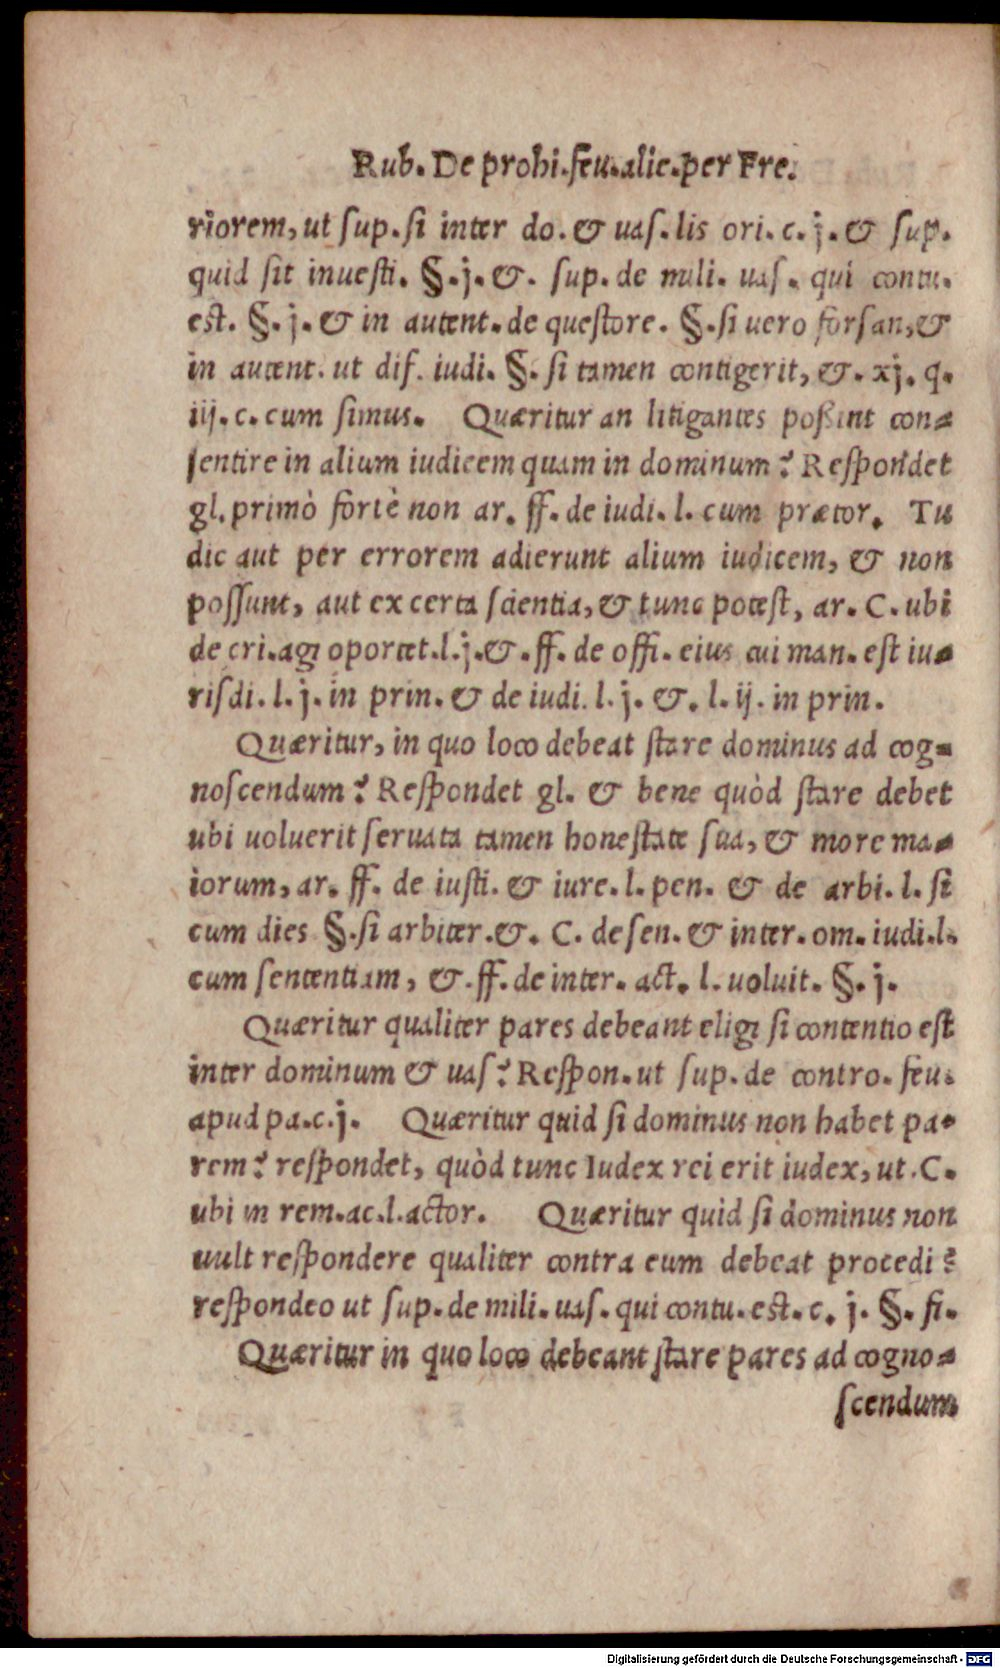 Rub. De prohi.feu.alie.per Fre.
riorem, ut sup. si inter do. & uas. lis ori. c. j. & sup.
quid sit inuesti. §. j. &. sup. de mili. uas. qui contu.
est. §. j. & in autent. de questore. §. si uero forsan, &
in autent. ut dif. iudi. §. si tamen contigerit, &. xj. q.
iij. c. cum simus. Quæritur an litigantes poßint con=
sentire in alium iudicem quam in dominum? Respondet
gl. primò fortè non ar. ff. de iudi. l. cum prætor. Tu
dic aut per errorem adierunt alium iudicem, & non
possunt, aut ex certa scientia, & tunc potest, ar. C. ubi
de cri. agi oportet. l. j. &. ff. de offi. eius cui man. est iu=
risdi. l. j. in prin. & de iudi. l. j. &. l. ij. in prin.
Quæritur, in quo loco debeat stare dominus ad cog=
noscendum? Respondet gl. & bene quòd stare debet
ubi uoluerit seruata tamen honestate sua, & more ma=
iorum, ar. ff. de iusti. & iure. l. pen. & de arbi. l. si
cum dies §. si arbiter. &. C. de sen. & inter. om. iudi. l.
cum sententiam, &. ff. de inter. act. l. uoluit. §. j.
Quæritur qualiter pares debeant eligi si contentio est
inter dominum & uas? Respon. ut sup. de contro. feu.
apud pa. c. j. Quæritur quid si dominus non habet pa=
rem? respondet, quòd tunc Iudex rei erit iudex, ut. C.
ubi in rem. ac. l. actor. Quæritur quid si dominus non
uult respondere qualiter contra eum debeat procedi?
respondeo ut sup. de mili. uas. qui contu. est. c. j. §. fi.
Quæritur in quo loco debeant stare pares ad cogno=
scendum
Digitalisierung gefördert durch die Deutsche Forschungsgemeinschaft - DFG